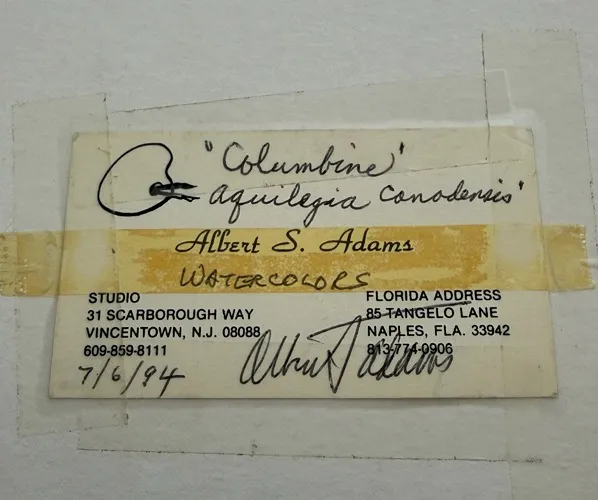 "Columbine"
Aquilegia Canadensis"
Albert S. Adams
WATERCOLORS
STUDIO
31 SCARBOROUGH WAY
VINCENTOWN, N.J. 08088
609-859-8111
FLORIDA ADDRESS
85 TANGELO LANE
NAPLES, FLA. 33942
813-774-0906
7/6/94
Albert S Adams